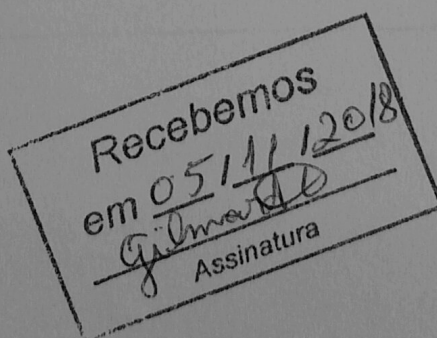 Recebemos
em 05/11/2018
Assinatura